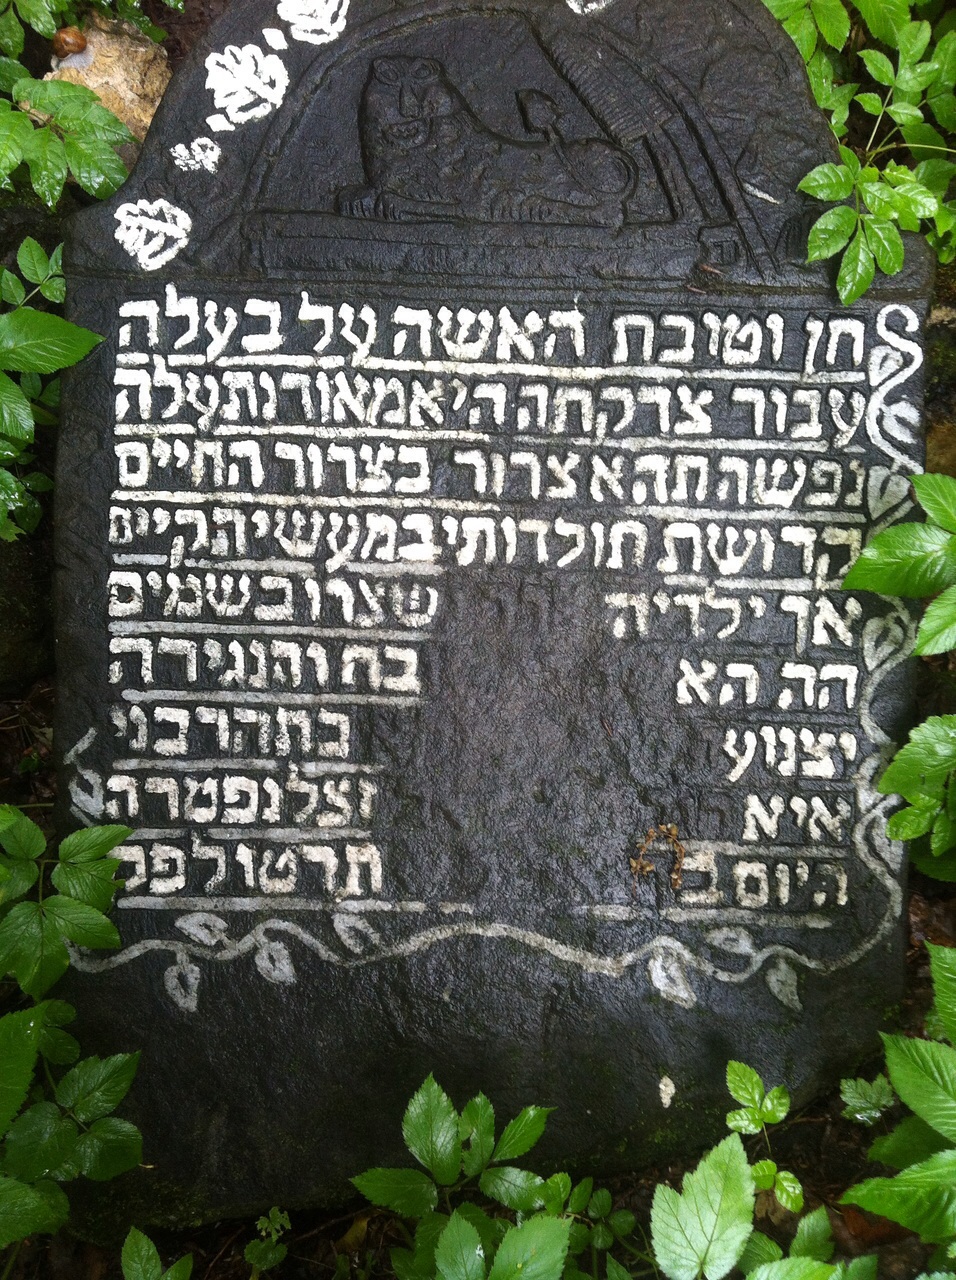 חן וטובת האשה על בעלה
עבור צדקתה היא מאורות עלה
נפשה תהא צרור בצרור החיים
קדושת תולדותי במעשיה קיים
אך ילדיה שצרו בשמים
הה הא בת והנגירה
יצנוע בתהר בני
איא זצל נפטרה
היום ב תרטו לפק